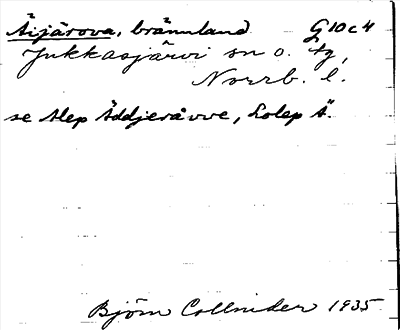 Äijärova, brännland G10c4
Jukkasjärvi sn o. tg,
Norrb. l.
se Alep Äddjeråvve, Lolep Ä.
Björn Collinder 1935